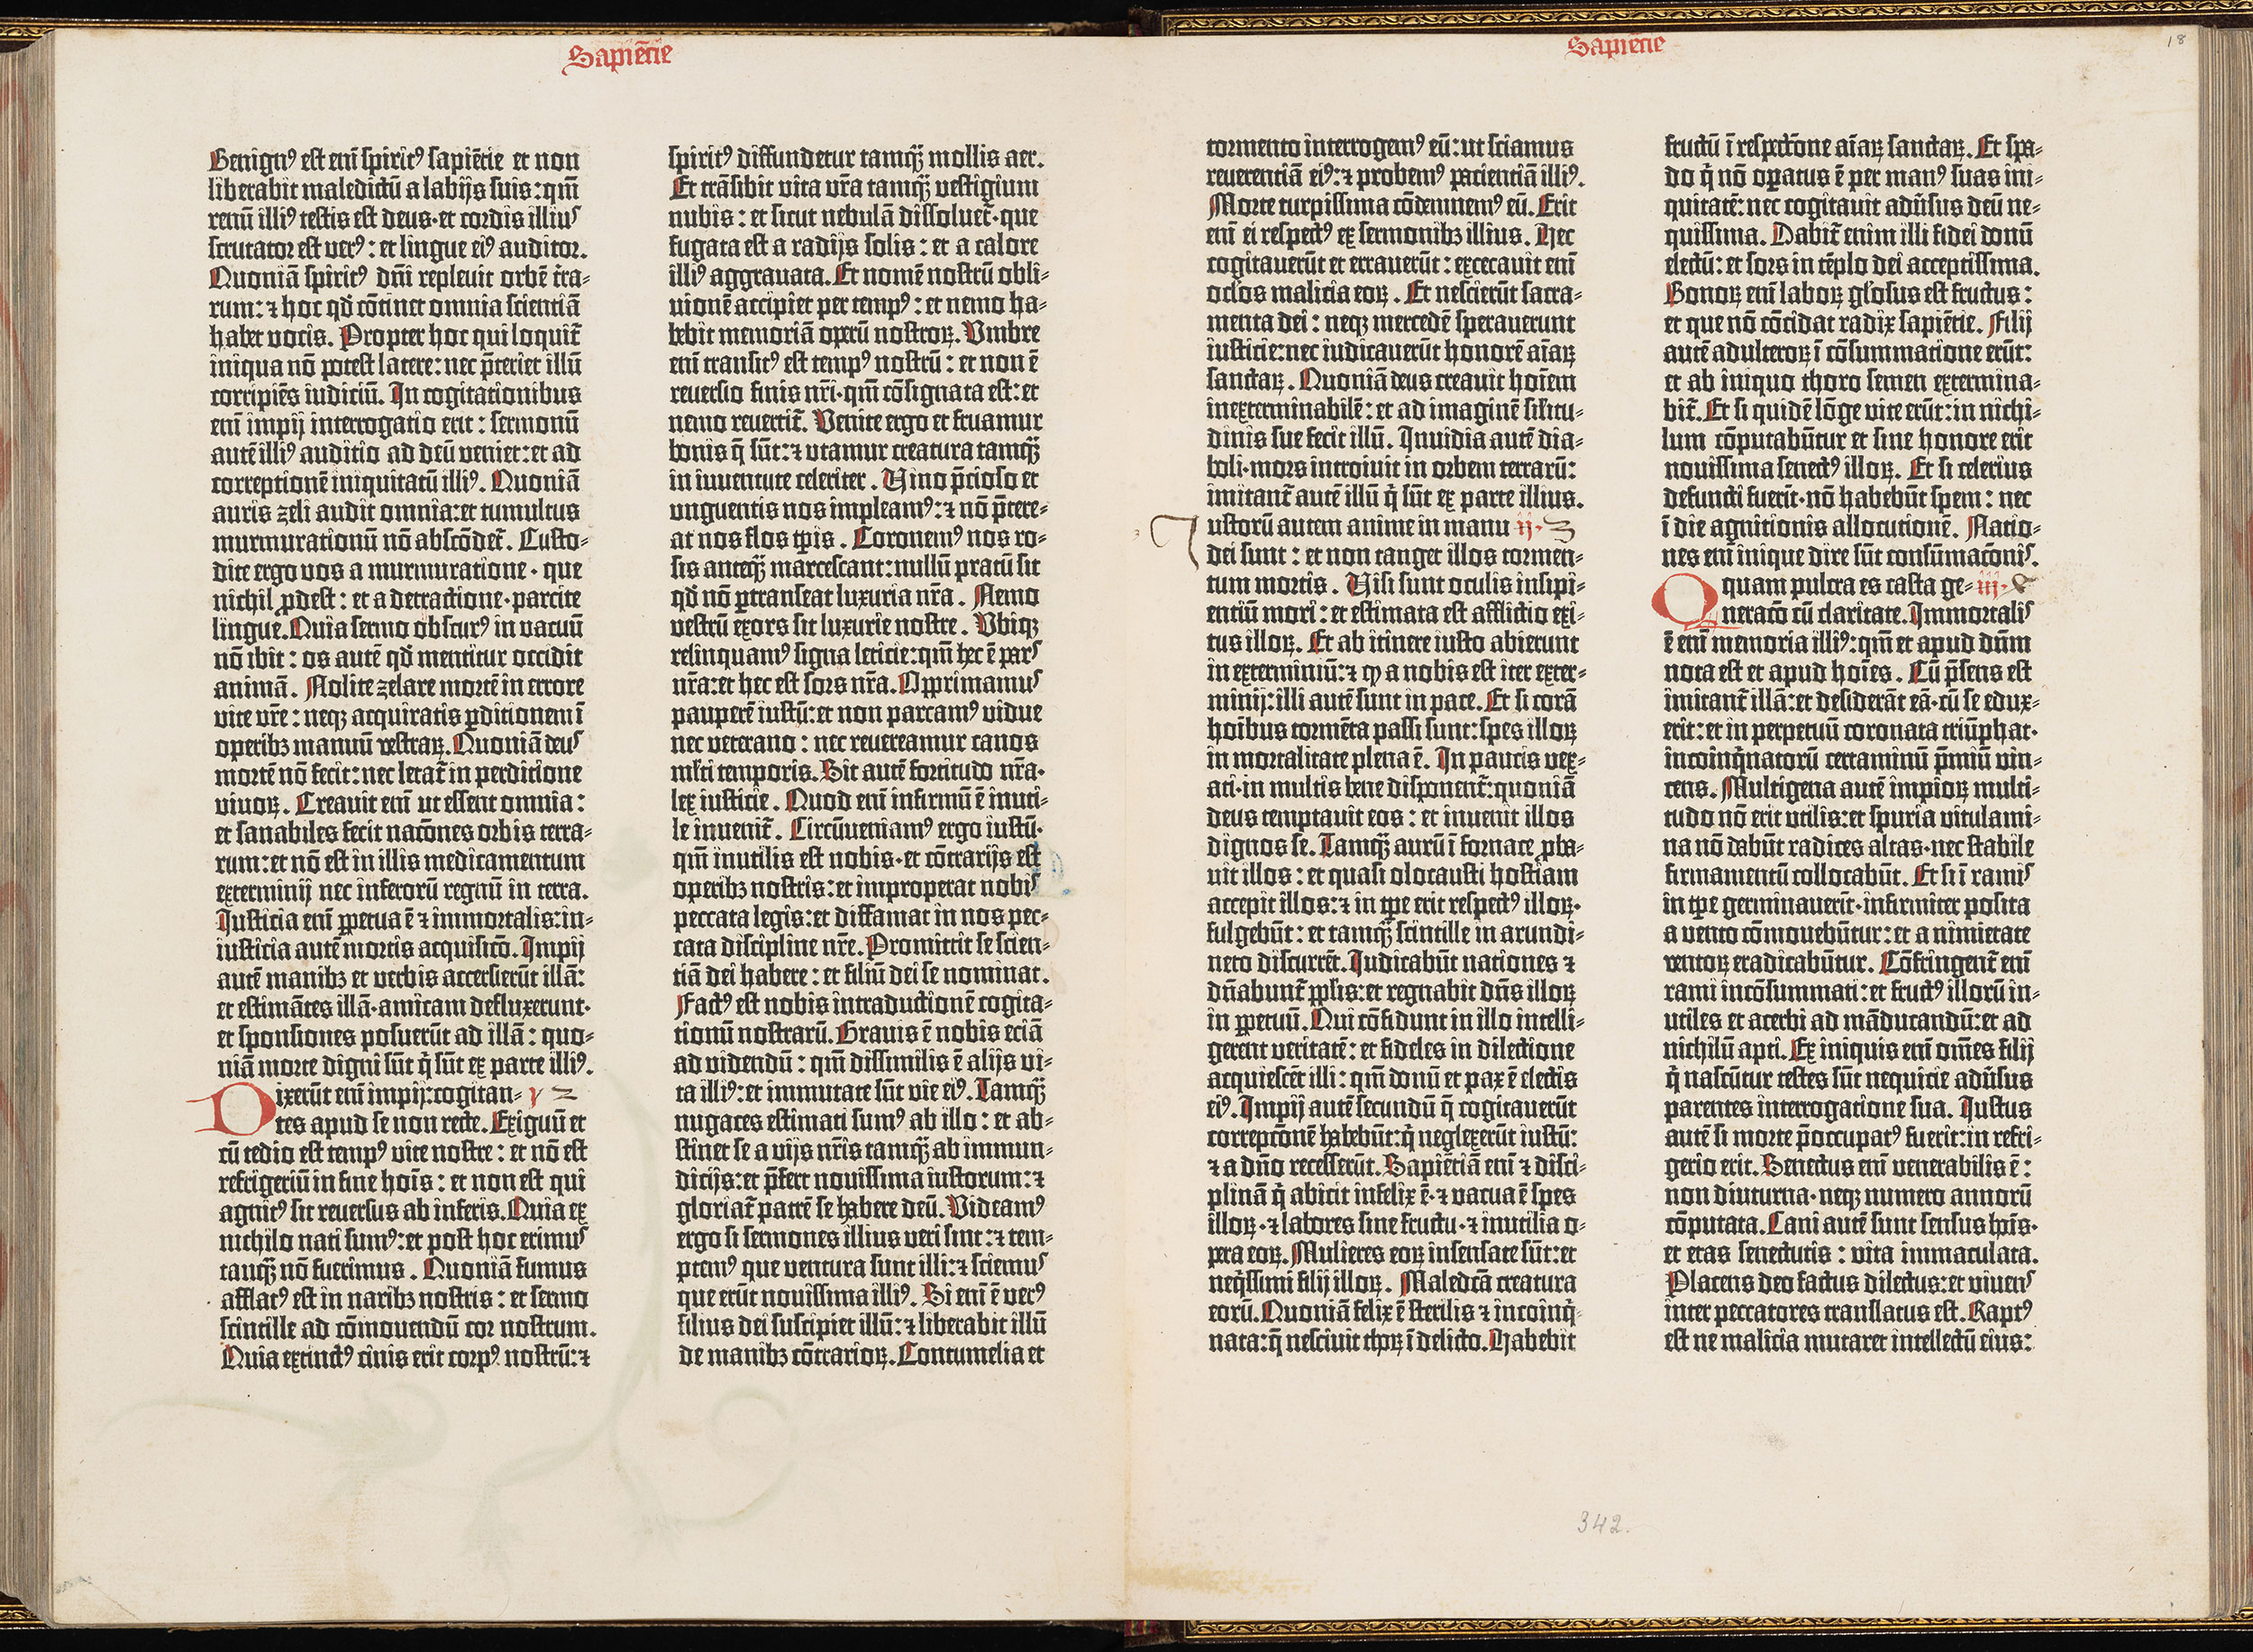 Sapiẽtie
Benignꝰ est enĩ spiritꝰ sapiẽtie et non
liberabit maledictũ a labijs suis:qm̃
renũ illiꝰ testis est deus·et cordis illius
scrutator est verꝰ: et lingue eiꝰ auditor.
Quoniã spiritꝰ dñi repleuit orbẽ t̃ra-
rum: ⁊ hoc qđ cõtinet omnia scientiã
habet vocis. Propter hoc qui loquit̃
iniqua nõ potest latere: nec p̃teriet illũ
corripiẽs iudiciũ. In cogitationibus
enĩ impij interrogatio erit : sermonũ
autẽ illiꝰ auditio ad deũ veniet: et ad
correptionẽ iniquitatũ illiꝰ. Quoniã
auris zeli audit omnia: et tumultus
murmurationũ nõ abscõdet̃. Custo-
dite ergo vos a murmuratione · que
nichil ꝓdest : et a detractione·parcite
lingue. Quia sermo obscurꝰ in vacuũ
nõ ibit : os autẽ qđ mentitur occidit
animã. Nolite zelare mortẽ in errore
vite vr̃e : neqꝫ acquiratis ꝑditionem ĩ
operibꝫ manuũ vestraꝝ. Quoniã deus
mortẽ nõ fecit: nec letat̃ in perditione
viuoꝝ. Creauit enĩ ut essent omnia :
et sanabiles fecit nacõnes orbis terra-
rum: et nõ est in illis medicamentum
exterminij nec inferorũ regnũ in terra.
Justicia enĩ ꝑpetua ẽ ⁊ immortalis: in-
iusticia autẽ mortis acquisitõ. Impij
autẽ manibꝫ et verbis accersierũt illã:
et estimãtes illã·amicam defluxerunt·
et sponsiones posuerũt ad illã : quo-
niã morte digni sũt q̃ sũt ex parte illiꝰ.
Dixerũt enĩ impij: cogitan- ꝩ 2
tes apud se non recte. Exiguũ et
cũ tedio est tempꝰ vite nostre : et nõ est
refrigeriũ in fine hoĩs : et non est qui
agnitꝰ sit reuersus ab inferis. Quia ex
nichilo nati sumꝰ: et post hoc erimus
tanqꝫ̃ nõ fuerimus . Quoniã fumus
afflatꝰ est in naribꝫ nostris : et sermo
scintille ad cõmouendũ cor nostrum.
Quia extinctꝰ cinis erit corpꝰ nostrũ: ⁊
spiritꝰ diffundetur tamqꝫ̃ mollis aer.
Et trãsibit vita vr̃a tamqꝫ̃ vestigium
nubis : et sicut nebulã dissoluet̃·que
fugata est a radijs solis : et a calore
illiꝰ aggrauata. Et nomẽ nostrũ obli-
uionẽ accipiet per tempꝰ : et nemo ha-
bebit memoriã operũ nostroꝝ. Vmbre
enĩ transitꝰ est tempꝰ nostrũ : et non ẽ
reuersio finis nr̃i·qm̃ cõsignata est: et
nemo reuertit̃. Venite ergo et fruamur
bonis q̃ sũt: ⁊ utamur creatura tamqꝫ̃
in iuuentute celeriter . Vino p̃cioso et
unguentis nos impleamꝰ: ⁊ nõ p̃tere-
at nos flos tꝑis . Coronemꝰ nos ro-
sis anteqꝫ̃ marcescant: nullũ pratũ sit
qđ nõ ꝑtranseat luxuria nr̃a . Nemo
vestrũ exors sit luxurie nostre . Vbiqꝫ
relinquamꝰ signa leticie: qm̃ hec ẽ pars
nr̃a: et hec est sors nr̃a. Opprimamus
pauperẽ iustũ: et non parcamꝰ vidue
nec veterano : nec reuereamur canos
ml̃ti temporis. Sit autẽ fortitudo nr̃a·
lex iusticie . Quod enĩ infirmũ ẽ inuti-
le inuenit̃ . Circũueniamꝰ ergo iustũ·
qm̃ inutilis est nobis·et cõtrarijs est
operibꝫ nostris: et improperat nobis
peccata legis: et diffamat in nos pec-
cata discipline nr̃e. Promittit se scien-
tiã dei habere : et filiũ dei se nominat.
Factꝰ est nobis intraductionẽ cogita-
tionũ nostrarũ. Grauis ẽ nobis eciã
ad videndũ : qm̃ dissimilis ẽ alijs vi-
ta illiꝰ: et immutate sũt vie eiꝰ. Tamqꝫ̃
nugaces estimati sumꝰ ab illo : et ab-
stinet se a vijs nr̃is tamqꝫ̃ ab immun-
dicijs: et p̃fert nouissima iustorum: ⁊
gloriat̃ patrẽ se habere deũ. Videamꝰ
ergo si sermones illius veri sint : ⁊ tem-
ptemꝰ que ventura sunt illi: ⁊ sciemus
que erũt nouissima illiꝰ. Si enĩ ẽ verꝰ
filius dei suscipiet illũ: ⁊ liberabit illũ
de manibꝫ cõtrarioꝝ. Contumelia et
Sapiẽtie
18
tormento interrogemꝰ eũ: ut sciamus
reuerentiã eiꝰ: ⁊ probemꝰ patientiã illiꝰ.
Morte turpissima cõdemnemꝰ eũ. Erit
enĩ ei respectꝰ ex sermonibꝫ illius. Hec
cogitauerũt et errauerũt : excecauit enĩ
ocl̃os malicia eoꝝ . Et nescierũt sacra-
menta dei : neqꝫ mercedẽ sperauerunt
iusticie: nec iudicauerũt honorẽ aĩaꝝ
sanctaꝝ . Quoniã deus creauit hoĩem
inexterminabilẽ : et ad imaginẽ sil̃itu-
dinis sue fecit illũ. Inuidia autẽ dia-
boli·mors introiuit in orbem terrarũ:
imitant̃ autẽ illũ q̃ sũt ex parte illius.
Justorũ autem anime in manu ij· 3
dei sunt : et non tanget illos tormen-
tum mortis . Visi sunt oculis insipi-
entiũ mori : et estimata est afflictio exi-
tus illoꝝ. Et ab itinere iusto abierunt
in exterminiũ: ⁊ ꝙ a nobis est iter exter-
minij: illi autẽ sunt in pace. Et si corã
hoĩbus tormẽta passi sunt: spes illoꝝ
in mortalitate plena ẽ. In paucis vex-
ati·in multis bene disponent̃: quoniã
deus temptauit eos : et inuenit illos
dignos se. Tamqꝫ̃ aurũ ĩ fornace ꝓba-
uit illos : et quasi olocausti hostiam
accepit illos: ⁊ in tꝑe erit respectꝰ illoꝝ·
fulgebũt : et tamqꝫ̃ scintille in arundi-
neto discurrẽt. Judicabũt nationes ⁊
dñabunt̃ ppl̃is: et regnabit dñs illoꝝ
in ꝑpetuũ. Qui cõfidunt in illo intelli-
gerent veritatẽ : et fideles in dilectione
acquiescẽt illi : qm̃ donũ et pax ẽ electis
eiꝰ. Impij autẽ secundũ q̃ cogitauerũt
correptõnẽ habebũt: q̃ neglexerũt iustũ:
⁊ a dño recesserũt. Sapiẽtiã enĩ ⁊ disci-
plinã q̃ abicit infelix ẽ·⁊ vacua ẽ spes
illoꝝ·⁊ labores sine fructu·⁊ inutilia o-
pera eoꝝ. Mulieres eoꝝ insensate sũt: et
neq̃ssimi filij illoꝝ . Maledcã creatura
eorũ. Quoniã felix ẽ sterilis ⁊ incoinq̃-
nata: q̃ nesciuit thoꝝ ĩ delicto. Habebit
fructũ ĩ respectõne aĩaꝝ sanctaꝝ. Et spa-
do q̃ nõ oꝑatus ẽ per manꝰ suas ini-
quitatẽ: nec cogitauit adũsus deũ ne-
quissima. Dabit̃ enim illi fidei donũ
electũ: et sors in tẽplo dei acceptissima.
Bonoꝝ enĩ laboꝝ gl̃osus est fructus :
et que nõ cõcidat radix sapiẽtie. Filij
autẽ adulteroꝝ ĩ cõsummatione erũt:
et ab iniquo thoro semen extermina-
bit̃. Et si quidẽ lõge vite erũt: in nichi-
lum cõputabũtur et sine honore erit
nouissima senectꝰ illoꝝ. Et si celerius
defuncti fuerĩt·nõ habebũt spem : nec
ĩ die agnitionis allocutionẽ. Natio-
nes enĩ inique dire sũt consũmacõnis.
O quam pulcra es casta ge- iij· 4
neracõ cũ claritate. Immortalis
ẽ enĩ memoria illiꝰ: qm̃ et apud dñm
nota est et apud hoĩes . Cũ p̃sens est
imitant̃ illã: et desiderãt eã·cũ se edux-
erit: et in perpetuũ coronata triũphat·
incoinq̃natorũ certaminũ p̃miũ vin-
cens. Multigena autẽ impioꝝ multi-
tudo nõ erit utilis: et spuria vitulami-
na nõ dabũt radices altas·nec stabile
firmamentũ collocabũt. Et si ĩ ramis
in tꝑe germinauerĩt·infirmiter posita
a vento cõmouebũtur: et a nimietate
ventoꝝ eradicabũtur. Cõfringent̃ enĩ
rami incõsummati: et fructꝰ illorũ in-
utiles et acerbi ad mãducandũ: et ad
nichilũ apti. Ex iniquis enĩ om̃es filij
q̃ nascũtur testes sũt nequicie adũsus
parentes interrogatione sua. Justus
autẽ si morte p̃occupatꝰ fuerit: in refri-
gerio erit. Senectus enĩ venerabilis ẽ :
non diuturna·neqꝫ numero annorũ
cõputata. Cani autẽ sunt sensus hoĩs·
et etas senectutis : vita immaculata.
Placens deo factus dilectus: et viuens
inter peccatores translatus est. Raptꝰ
est ne malicia mutaret intellectũ eius:
342.